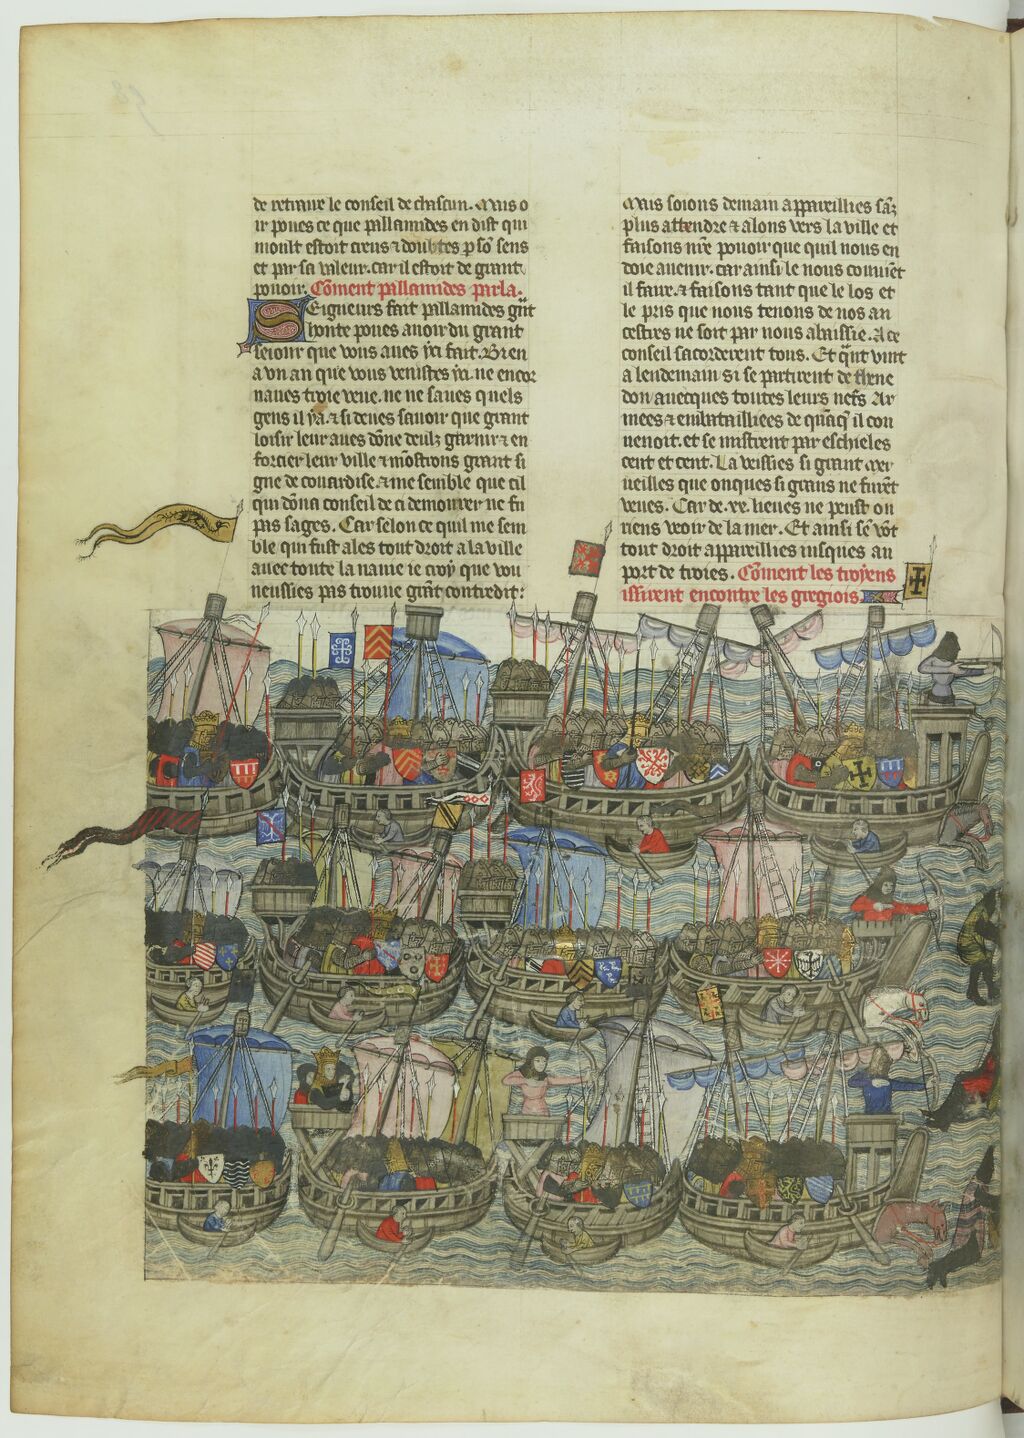 de retraire le conseil de chascun. Mais o
ir poues ce que pallamides en dist qui
moult estoit creus ⁊ doubtes p̲ sō sens
et par sa valeur. car il estoit de grant
pouoir. Cōment pallamides parla.
Seigueurs fait pallamides gñt
honte poues auoir du grant
seiour que vous aues yci fait. Bien
a vn an que vous venistes ya. ne encor
naues troie veue. ne ne saues quels
gens il ya. ⁊ si deues sauoir que grant
loisir leur aues dōne deulz garnir ⁊ en
forcier leur ville ⁊ mōstrons grant si
gne de couardise. ⁊ me semble que cil
qui dōna conseil de ci demourer ne fu
pas sages. Car selon ce quil me sem
ble qui fust ales tout droit a la ville
auec toute la nauie ie croy que vou
neussies pas trouue grāt contredit:
Mais soions demain appareillies sāz
plus attendre ⁊ alons vers la ville et
faisons nr̄e pouoir que quil nous en
doie auenir. car ainsi le nous couuiēt
il faire. ⁊ faisons tant que le los et
le pris que nous tenons de nos an
cestres ne soit par nous abaissie. A ce
conseil sacorderent tous. Et q̄nt vint
a lendemain si se partirent de thene
don auecques toutes leurs nefs Ar
mees ⁊ embataillies de quāq̄ il con
uenoit. et se mistrent par eschieles
cent et cent. La veissies si grant mer
ueilles que onques si grans ne furēt
veues. Car de .xx. lieues ne peust on
riens veoir de la mer. Et ainsi sē vōt
tout droit appareillies iusques au
port de troies. Cōment les troyens
issirent encontre les gregiois.